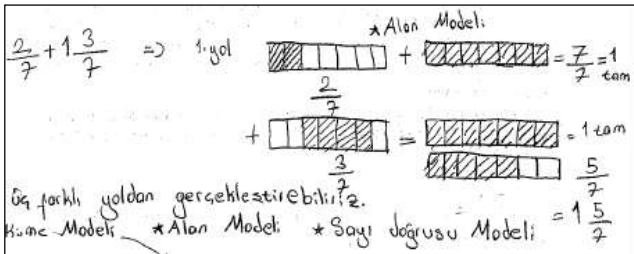 * Alan Modeli
2/7 + 1 3/7 => 1.yol + = 7/7 = 1 tam
2/7
+ = 1 tam
3/7 5/7
Üç farklı yoldan gerçekleştirebiliriz.
= 1 5/7
Küme Modeli * Alan Modeli * Sayı doğrusu Modeli